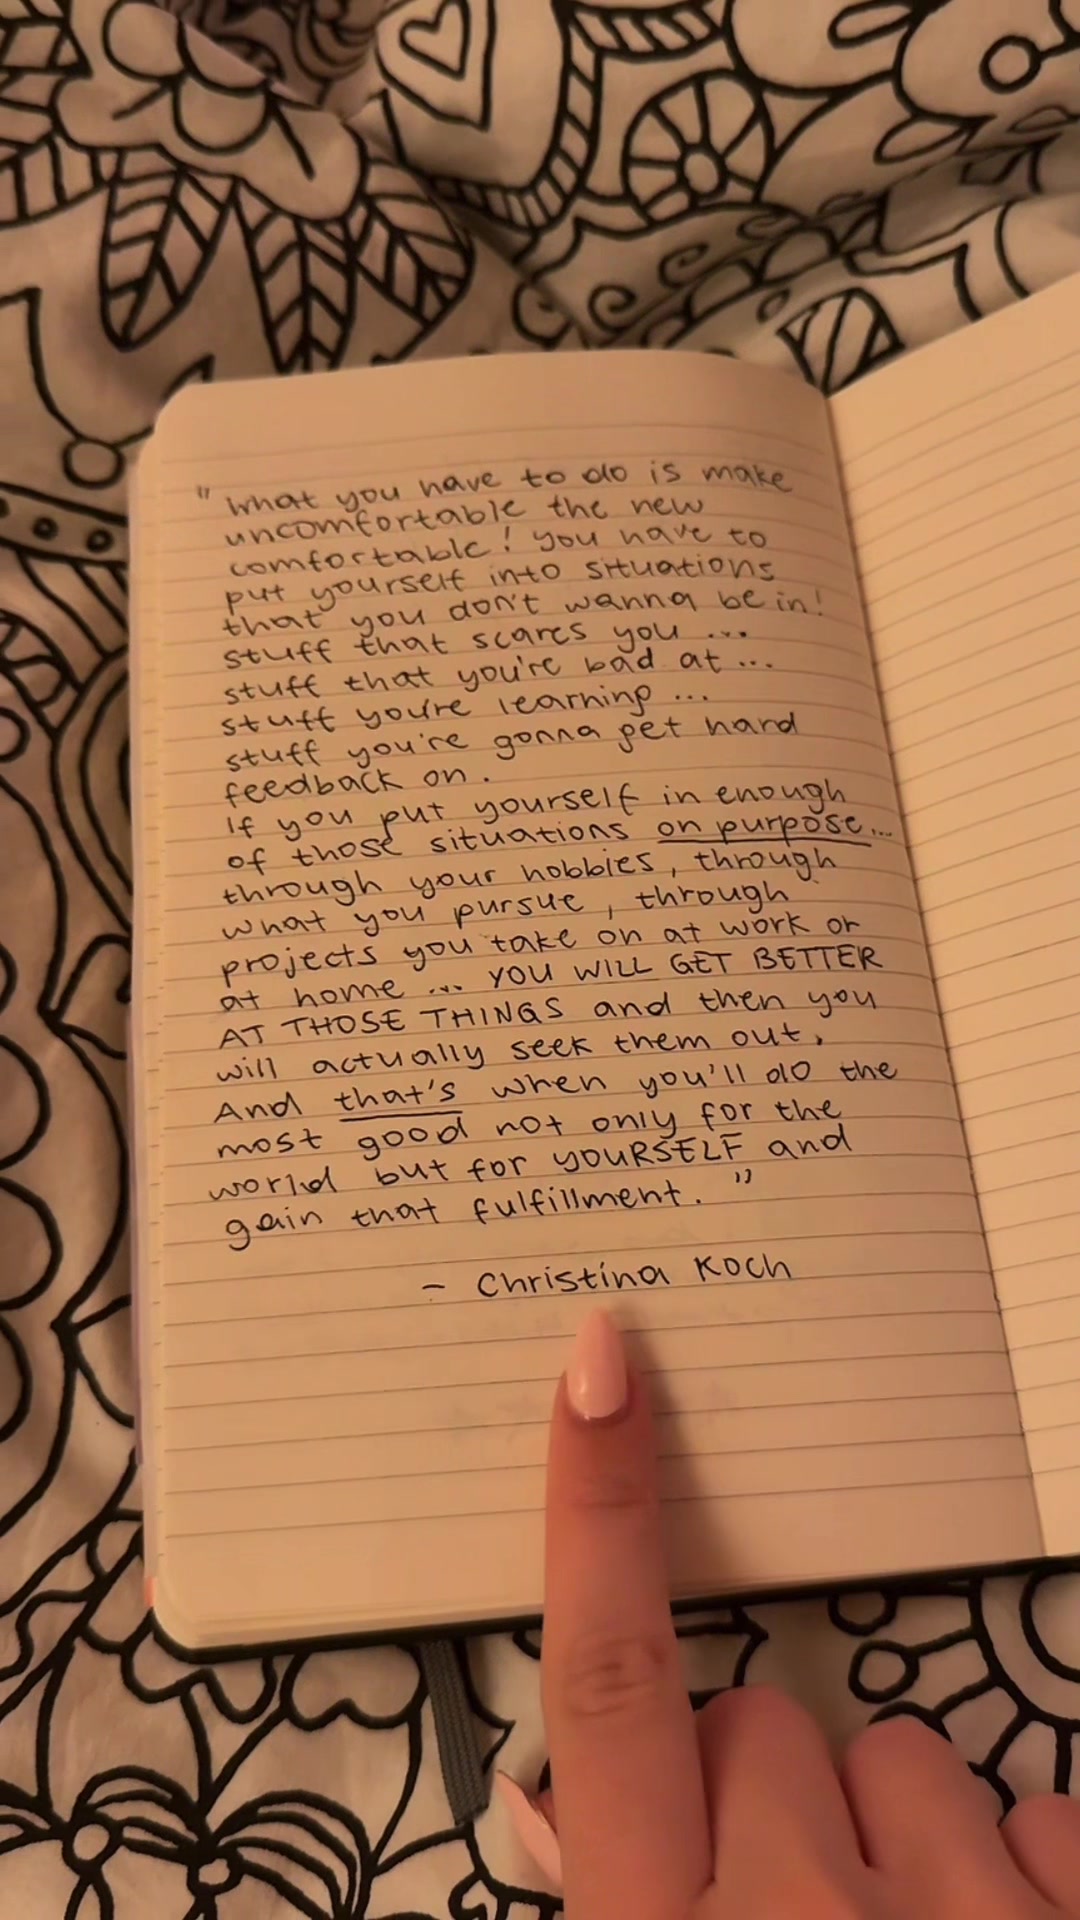 "What you have to do is make
uncomfortable the new
comfortable! you have to
put yourself into situations
that you don't wanna be in!
stuff that scares you ...
stuff that you're bad at ...
stuff you're learning ...
stuff you're gonna get hard
feedback on.
If you put yourself in enough
of those situations on purpose...
through your hobbies, through
what you pursue, through
projects you take on at work or
at home ... YOU WILL GET BETTER
AT THOSE THINGS and then you
will actually seek them out.
And that's when you'll do the
most good not only for the
world but for YOURSELF and
gain that fulfillment."
- Christina Koch